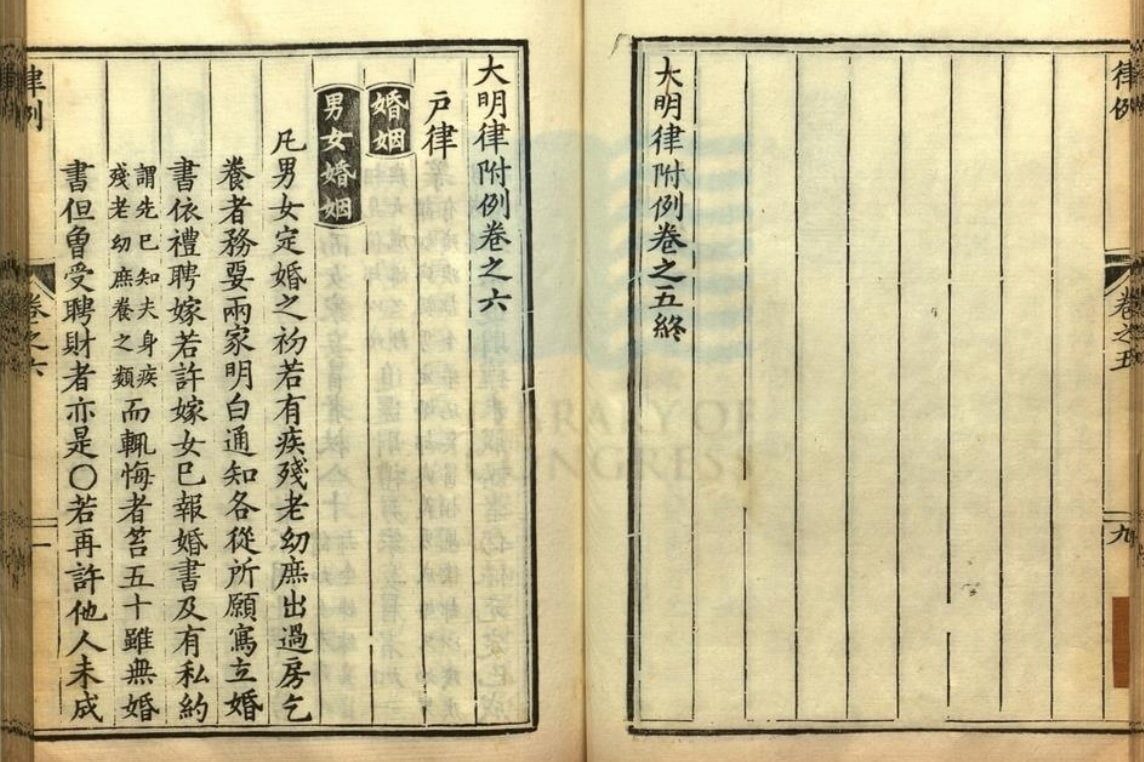 律例 卷之五 九
大明律附例卷之五終
大明律附例卷之六
戸律
婚姻
男女婚姻
凡男女定婚之初若有疾殘老幼庶出過房乞
養者務要兩家明白通知各從所願寫立婚
書依禮聘嫁若許嫁女已報婚書及有私約
謂先已知夫身疾
殘老幼庶養之類
而輒悔者笞五十雖無婚
書但曾受聘財者亦是○若再許他人未成
律例 卷之六 一
LIBRARY OF
CONGRESS